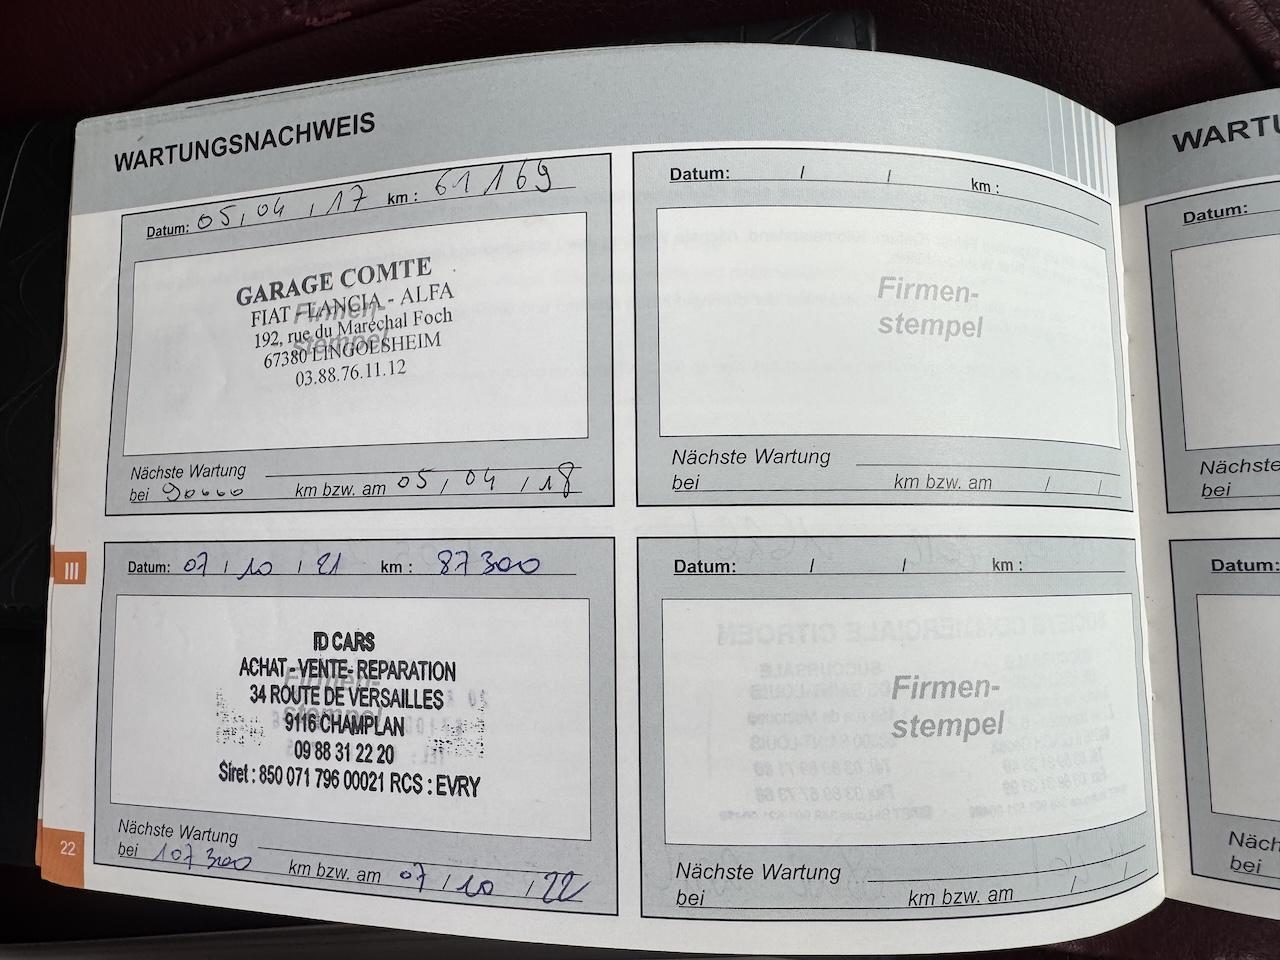 WARTUNGSNACHWEIS
Datum: 05, 04, 17 km: 61 169
GARAGE COMTE
FIAT - LANCIA - ALFA
192, rue du Maréchal Foch
67380 LINGOLSHEIM
03.88.76.11.12
Firmen-
stempel
Nächste Wartung
bei 90000 km bzw. am 05, 04, 18
Datum: / / km :
Firmen-
stempel
Nächste Wartung
bei km bzw. am / /
Datum: 07, 10, 21 km : 87300
ID CARS
ACHAT - VENTE - REPARATION
34 ROUTE DE VERSAILLES
9116 CHAMPLAN
09 88 31 22 20
Siret : 850 071 796 00021 RCS : EVRY
Firmen-
stempel
Nächste Wartung
bei 107300 km bzw. am 07, 10, 22
Datum: / / km :
Firmen-
stempel
Nächste Wartung
bei km bzw. am / /
III
22
WARTU
Datum:
Nächste
bei
Datum:
Näch
bei